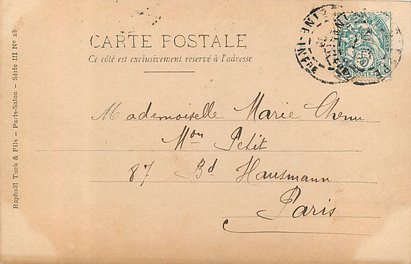 CARTE POSTALE
Ce côté est exclusivement réservé à l'adresse
Mademoiselle Marie Chenu
Mon Petit
87 Bd Hausmann
Paris
Raphaël Tuck & Fils — Paris-Salon — Série III No 28